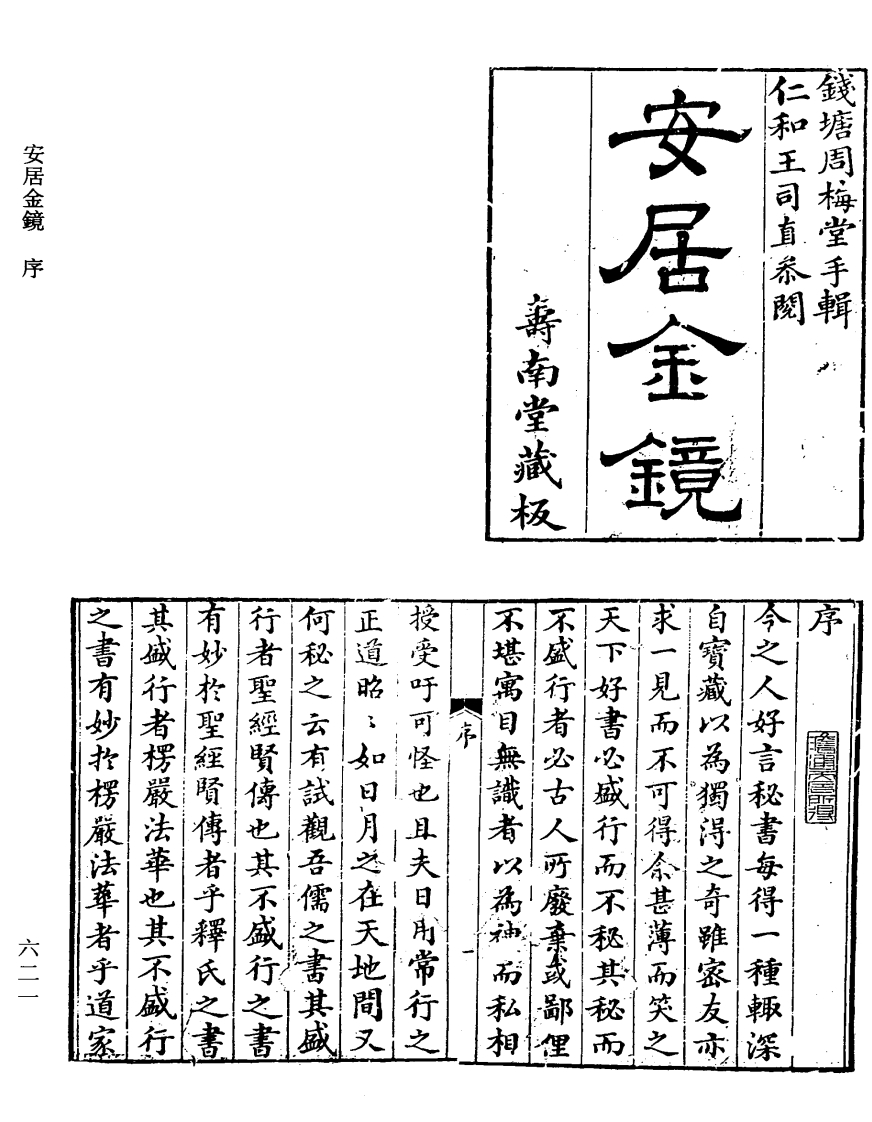 錢塘周梅堂手輯
仁和王司直叅閱
安居金鏡
壽南堂藏板
安居金鏡　序
序
今之人好言秘書每得一種輙深
自寶藏以為獨淂之奇雖宻友亦
求一見而不可得余甚薄而笑之
天下好書必盛行而不秘其秘而
不盛行者必古人所廢棄或鄙俚
不堪寓目無識者以為神而私相
序
一
授受吁可怪也且夫日用常行之
正道昭〻如日月之在天地間又
何秘之云有試觀吾儒之書其盛
行者聖經賢傳也其不盛行之書
有妙於聖經賢傳者乎釋氏之書
其盛行者楞嚴法華也其不盛行
之書有妙於楞嚴法華者乎道家
六二一